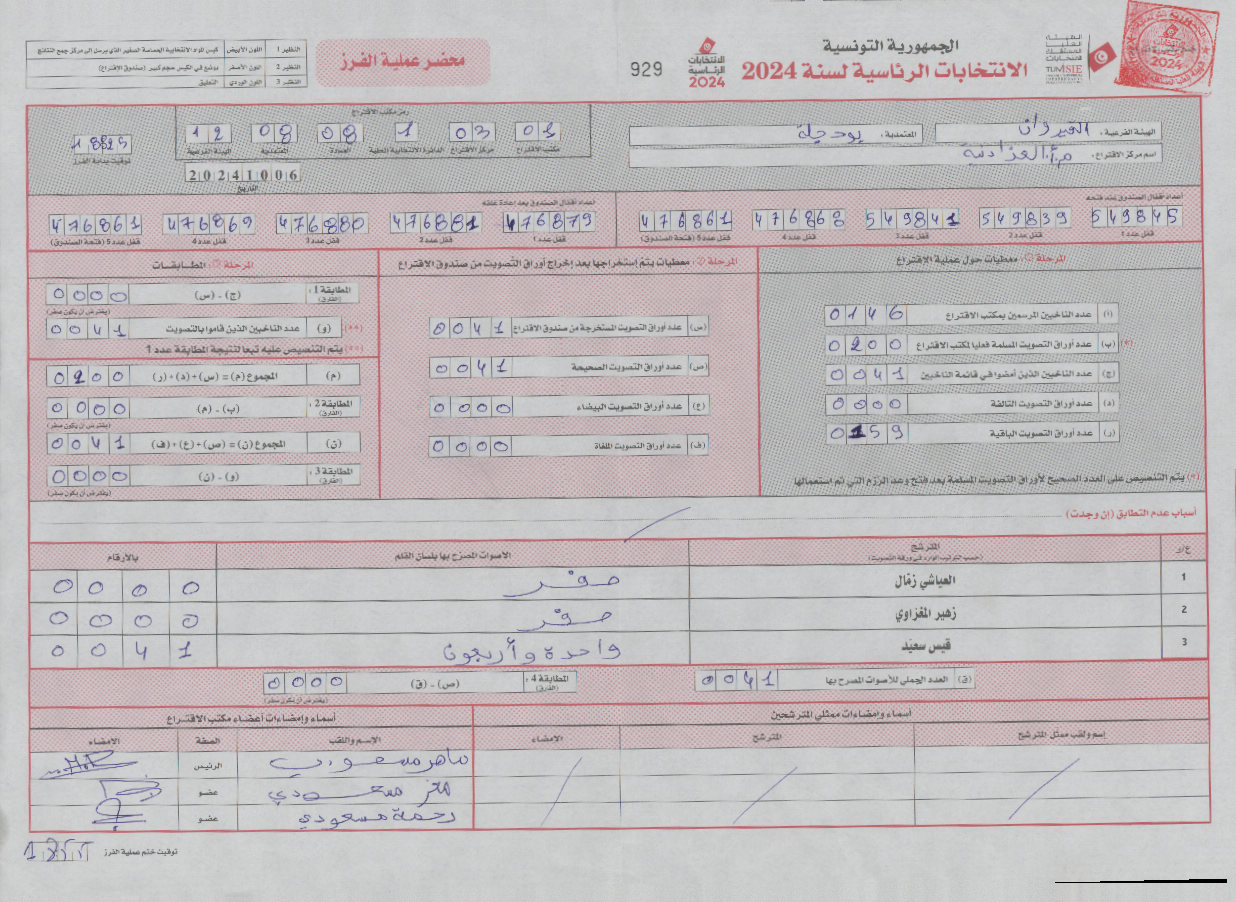 الجمهورية التونسية
الانتخابات الرئاسية لسنة 2024
الهيئة العليا المستقلة للانتخابات
TUNISIE
الانتخابات الرئاسية 2024
929
محضر عملية الفرز
النظير 1 اللون الأبيض كيس المواد الانتخابية الحساسة الصغير الذي يرسل الى مركز جمع النتائج
النظير 2 اللون الأصفر يوضع في الكيس حجم كبير (صندوق الاقتراع)
النظير 3 اللون الوردي التعليق
الهيئة الفرعية : القيروان المعتمدية : بوحجلة
اسم مركز الاقتراع :
رمز مكتب الاقتراع
01 03 1 08 08 12
مكتب الاقتراع مركز الاقتراع الدائرة الانتخابية المحلية العمادة المعتمدية الهيئة الفرعية
توقيت بداية الفرز
20241006
التاريخ
أعداد أقفال الصندوق عند فتحه
549845 549839 549841 476868 476861
قفل عدد 1 قفل عدد 2 قفل عدد 3 قفل عدد 4 قفل عدد 5 (فتحة الصندوق)
أعداد أقفال الصندوق بعد إعادة غلقه
476879 476881 476880 476869 476861
قفل عدد 1 قفل عدد 2 قفل عدد 3 قفل عدد 4 قفل عدد 5 (فتحة الصندوق)
المرحلة 1 : معطيات حول عملية الاقتراع
(أ) عدد الناخبين المرسمين بمكتب الاقتراع 0146
(*) (ب) عدد أوراق التصويت المسلمة فعليا لمكتب الاقتراع 0200
(ج) عدد الناخبين الذين أمضوا في قائمة الناخبين 0041
(د) عدد أوراق التصويت التالفة 0000
(ر) عدد أوراق التصويت الباقية 0159
(*) يتم التنصيص على العدد الصحيح لأوراق التصويت المسلمة بعد فتح وعد الرزم التي تم استعمالها
المرحلة 2 : معطيات يتم إستخراجها بعد إخراج أوراق التصويت من صندوق الاقتراع
(س) عدد أوراق التصويت المستخرجة من صندوق الاقتراع 0041
(ص) عدد أوراق التصويت الصحيحة 0041
(ع) عدد أوراق التصويت البيضاء 0000
(ف) عدد أوراق التصويت الملغاة 0000
المرحلة 3 : المطابقات
المطابقة 1 : (الفارق) (ج) - (س) 0000
(يفترض أن يكون صفر)
(**) (و) عدد الناخبين الذين قاموا بالتصويت 0041
(**) يتم التنصيص عليه تبعا لنتيجة المطابقة عدد 1
(م) المجموع (م) = (س) + (د) + (ر) 0200
المطابقة 2 : (الفارق) (ب) - (م) 0000
(يفترض أن يكون صفر)
(ن) المجموع (ن) = (ص) + (ع) + (ف) 0041
المطابقة 3 : (الفارق) (و) - (ن) 0000
(يفترض أن يكون صفر)
أسباب عدم التطابق (إن وجدت)
ع/ر المترشح الأصوات المصرح بها بلسان القلم بالأرقام
(حسب الترتيب الوارد في ورقة التصويت)
1 العياشي زمّال صفر 0000
2 زهير المغزاوي صفر 0000
3 قيس سعيّد واحدة وأربعون 0041
(ق) العدد الجملي للأصوات المصرح بها 0041 المطابقة 4 : (الفارق) (ص) - (ق) 0000
(يفترض أن يكون صفر)
أسماء وإمضاءات ممثلي المترشحين أسماء وإمضاءات أعضاء مكتب الاقتراع
إسم ولقب ممثل المترشح المترشح الامضاء الإسم واللقب الصفة الامضاء
ماهر مسعودي الرئيس
مسعودي عضو
رحمة مسعودي عضو
توقيت ختم عملية الفرز